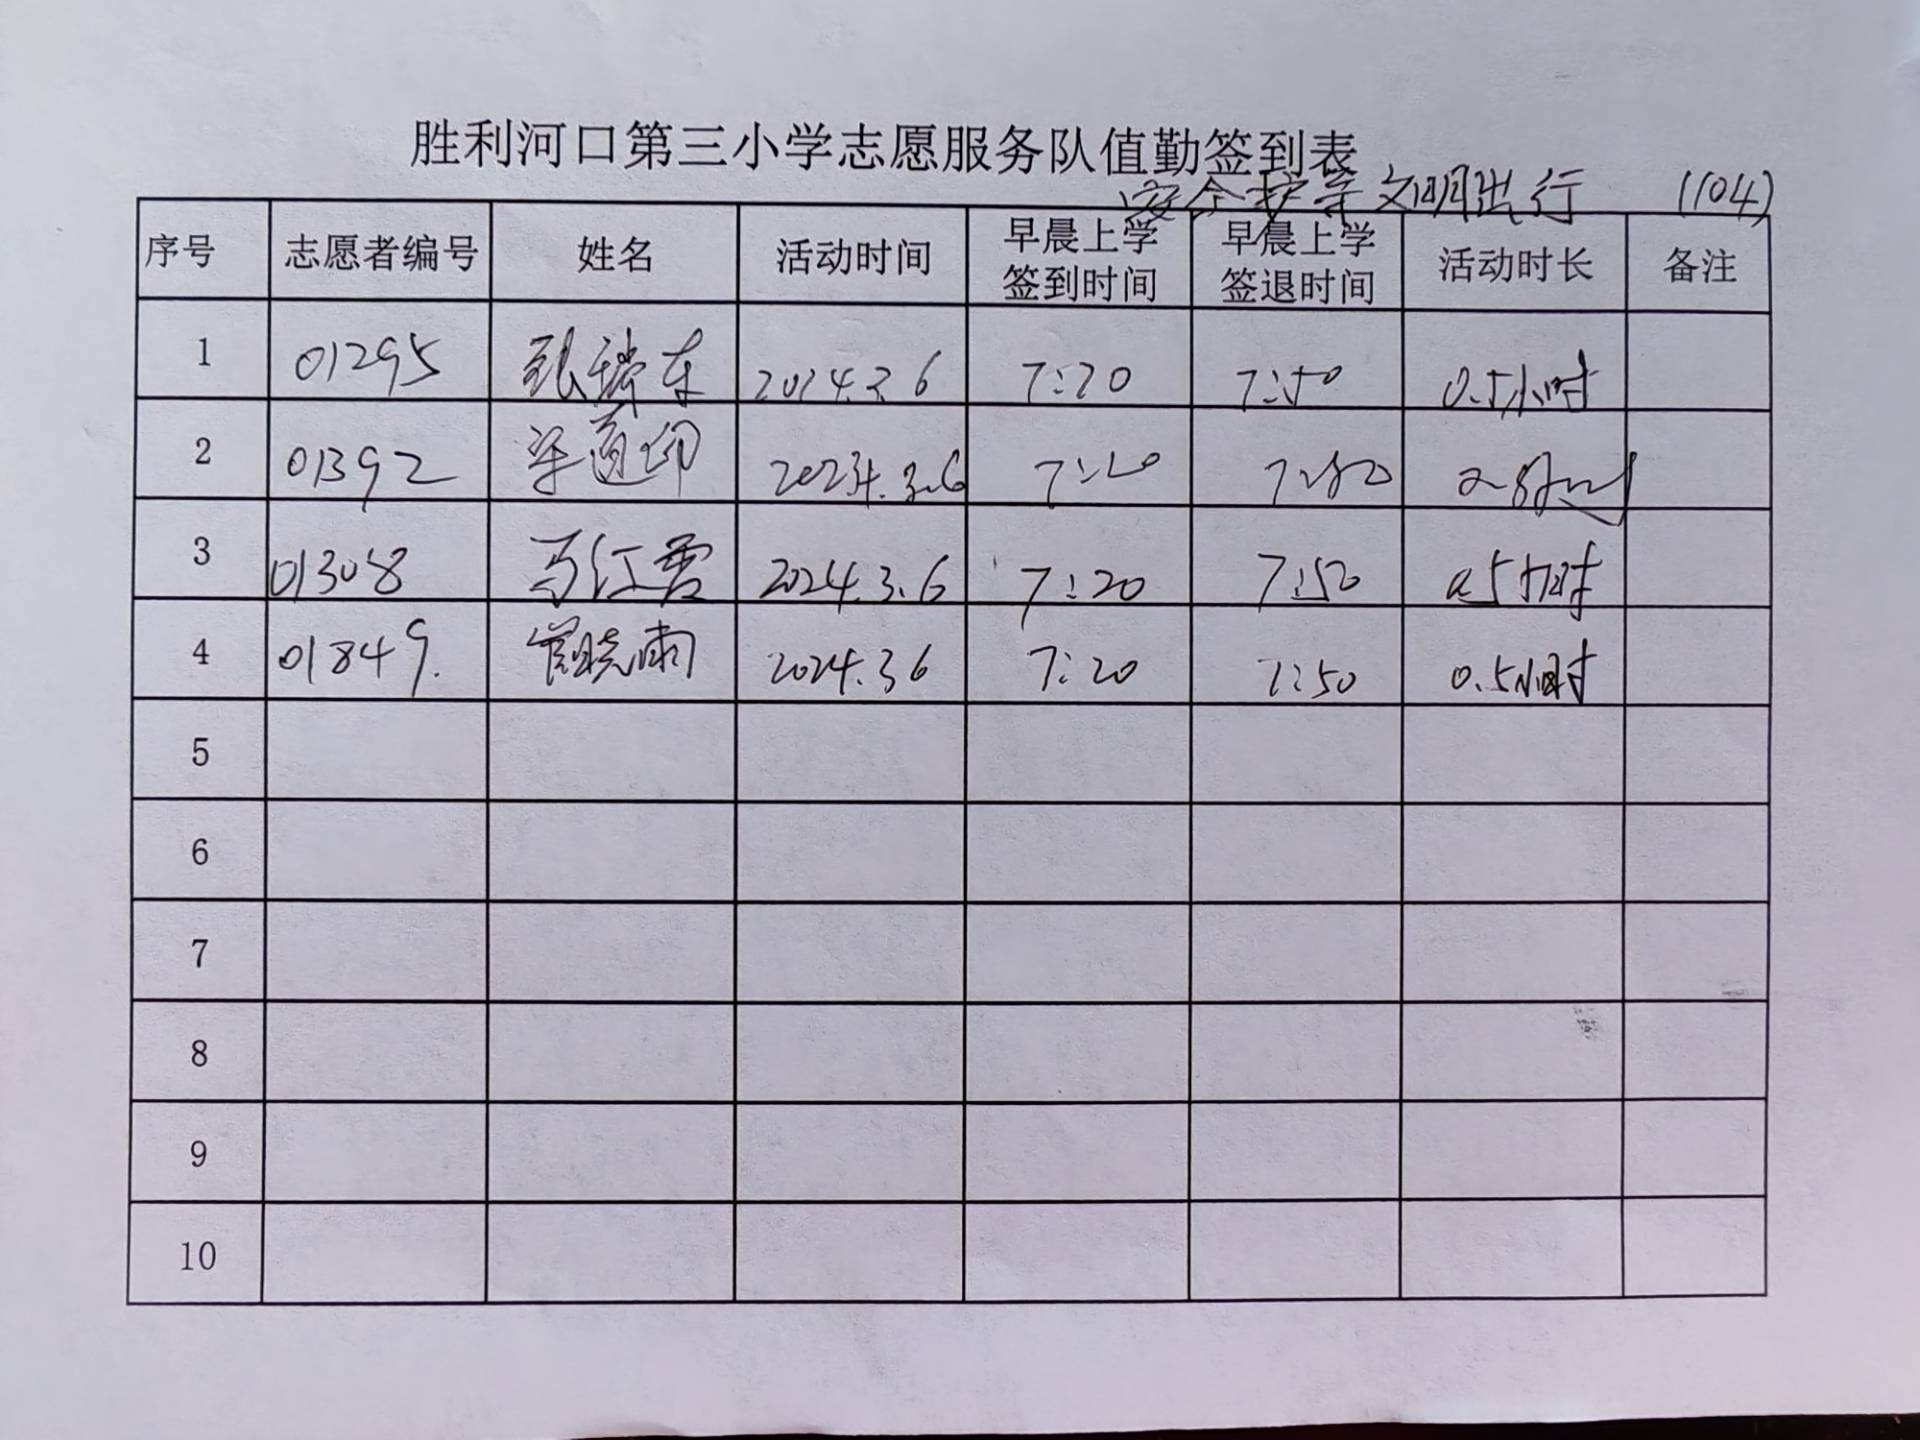 胜利河口第三小学志愿服务队值勤签到表
安全护导 文明出行 (104)
序号 志愿者编号 姓名 活动时间 早晨上学签到时间 早晨上学签退时间 活动时长 备注
1 01295 张瑞东 2024.3.6 7:20 7:50 0.5小时
2 01392 2024.3.6 7:20 7:50
3 01308 马红雪 2024.3.6 7:20 7:50 0.5小时
4 01849. 崔晓雨 2024.3.6 7:20 7:50 0.5小时
5
6
7
8
9
10